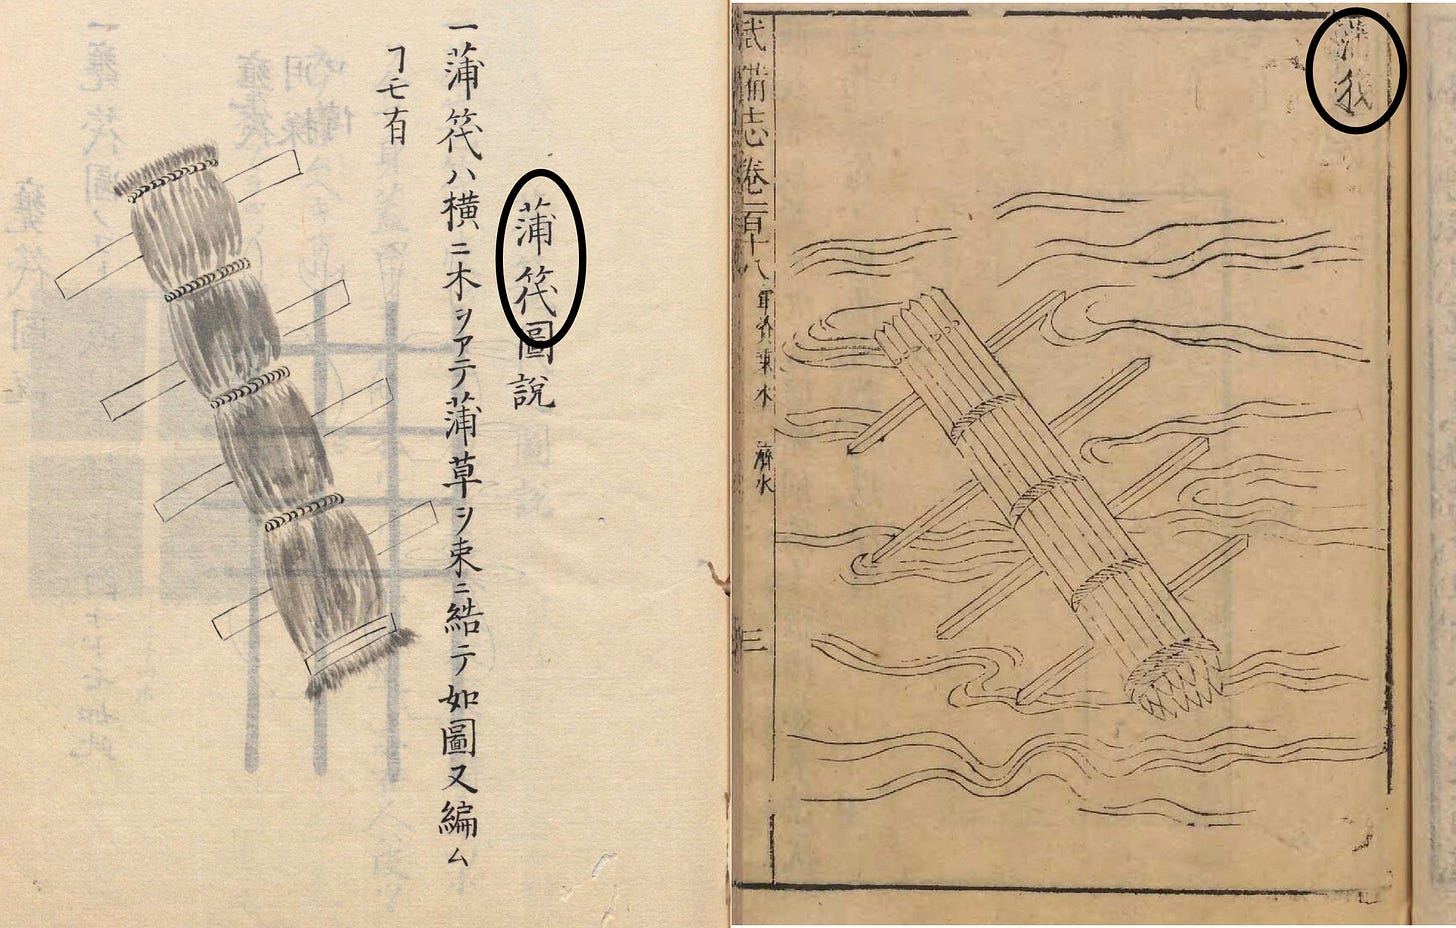 蒲筏圖説
一蒲筏ハ横ニ木ヲアテ蒲草ヲ束ニ結テ如圖又編ム
ヿモ有
蒲筏
武備志卷二百十八 軍資乘水 濟水 三